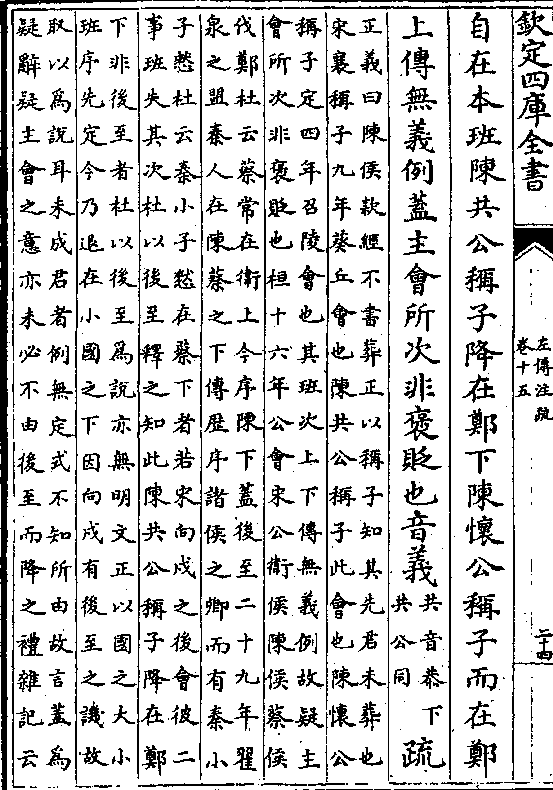 欽定四庫全書
左傳注疏
卷十五
二十四
自在本班陳共公稱子降在鄭下陳懷公稱子而在鄭
上傳無義例蓋主會所次非褒貶也音義
共音恭下
共公同
疏
正義曰陳侯款經不書葬正以稱子知其先君未葬也
宋襄稱子九年葵丘會也陳共公稱子此會也陳懷公
稱子定四年召陵會也其班次上下傳無義例故疑主
會所次非褒貶也桓十六年公會宋公衛侯陳侯蔡侯
伐鄭杜云蔡常在衛上今序陳下蓋後至二十九年翟
泉之盟秦人在陳蔡之下傳歷序諸侯之卿而有秦小
子憖杜云秦小子憖在蔡下者若宋向戌之後會彼二
事班失其次杜以後至釋之知此陳共公稱子降在鄭
下非後至者杜以後至為說亦無明文正以國之大小
班序先定今乃退在小國之下因向戌有後至之譏故
取以為說耳未成君者例無定式不知所由故言蓋為
疑辭疑主會之意亦未必不由後至而降之禮雜記云